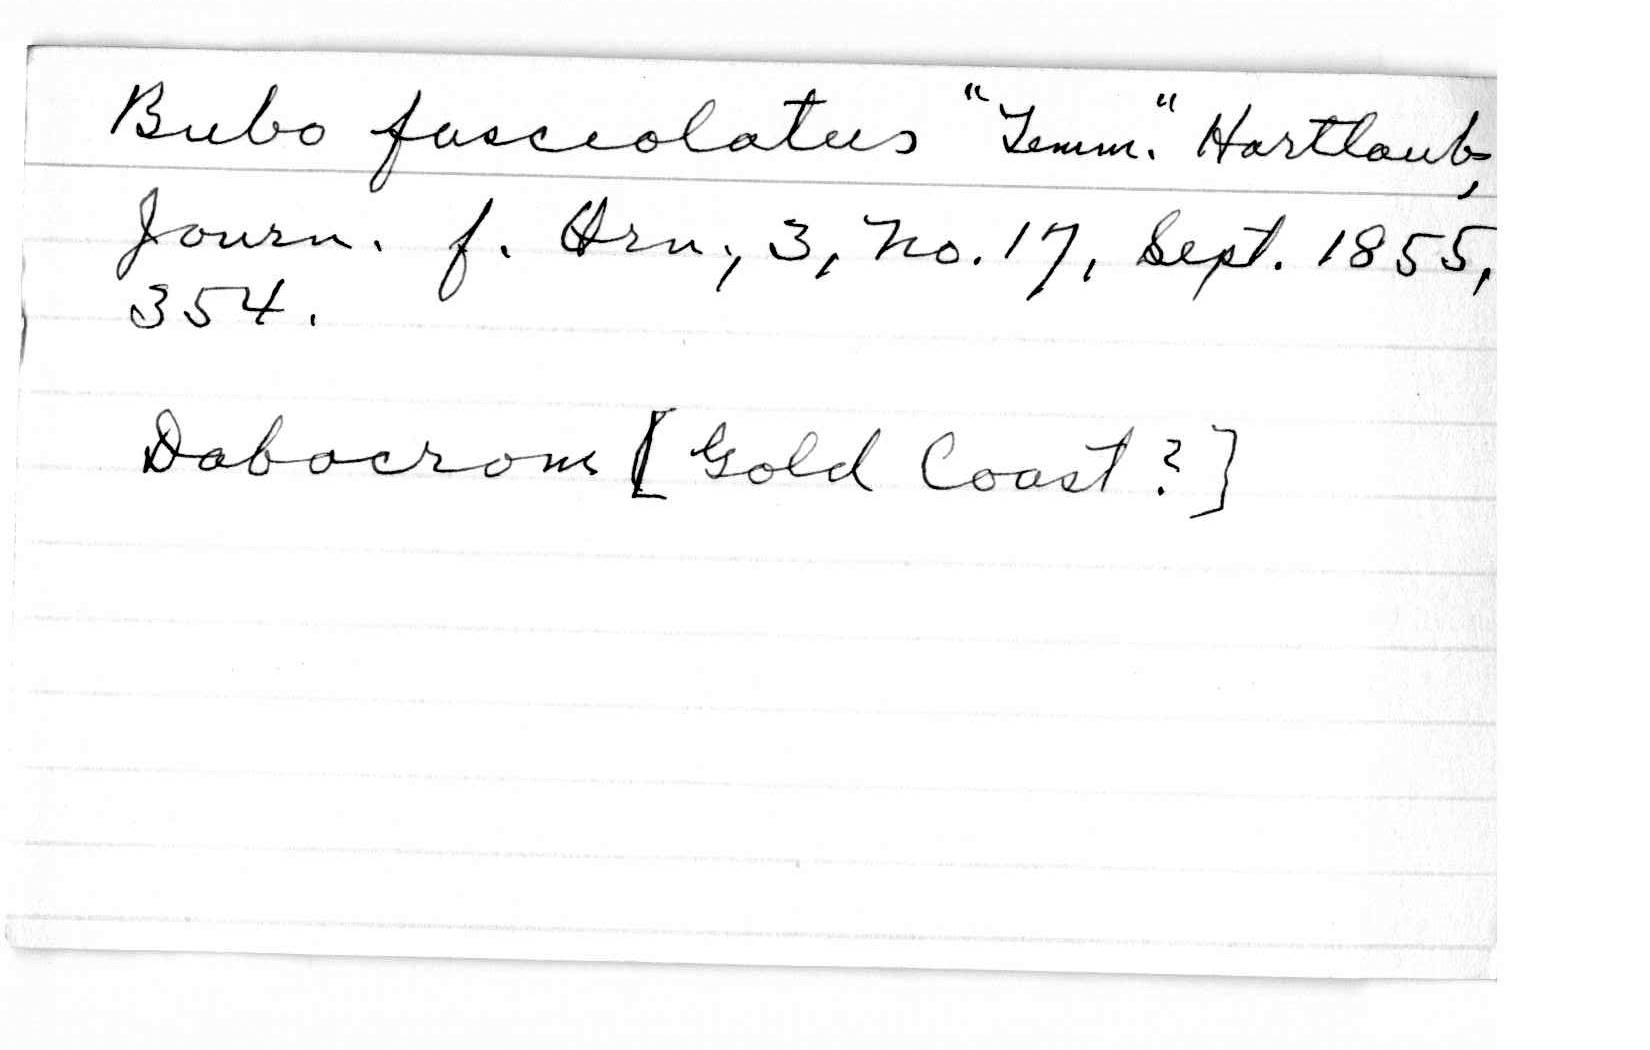 Bubo fasciolatus "Temm." Hartlaub,
Journ. f. Orn., 3, No. 17, Sept. 1855,
354.
Dabocrom [Gold Coast?]